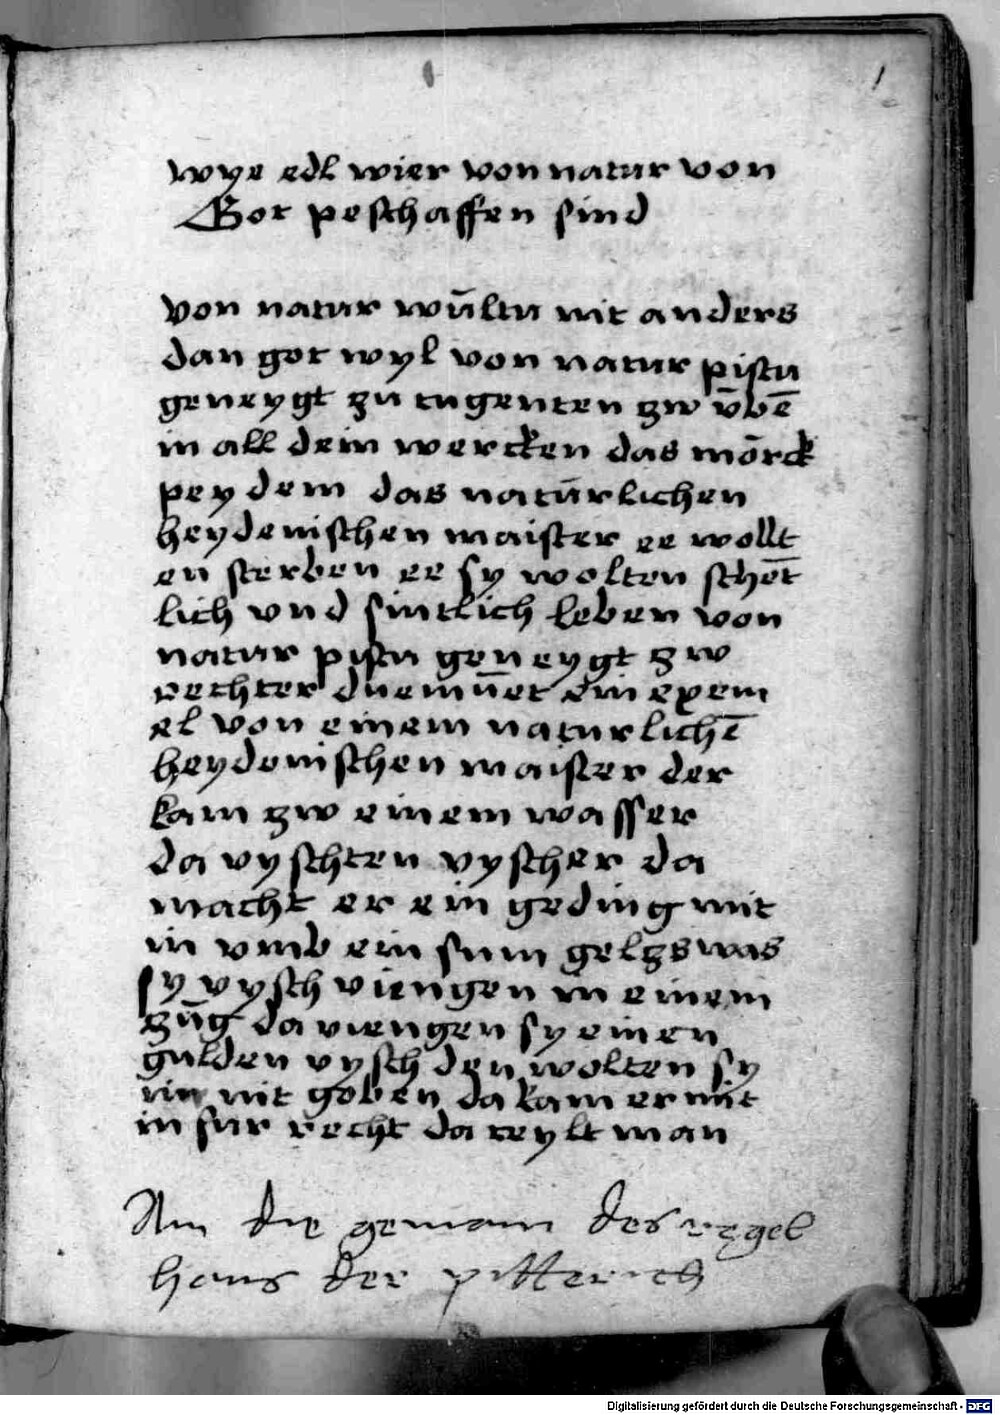 1
wye edl wier von natur von
Got peschaffen sind
Von natur wu̅ltu nit anders
dan got wyl von natur pistu
geneygt zu tugenten zw v̅be̅
in all dein wercken das mo̅rck
pey dem das natu̅rlichen
heydenischen maister ee wollt
en sterben ee sy wolten sche̅t
lich vnd sintlich leben von
natur pistu geneygt zw
rechter duemu̅et ein exem
el von einem naturliche̅
heydenischen maister der
kam zw einem wasser
da vyschten vyscher da
macht er ein geding mit
in vmb ein sum geltzs was
sy vysch viengen in einem
zu̅g da viengen sy einen
gulden vysch den wolten sy
im nit geben da kam er mit
in fur recht da teylt man
Am die gemain des regel
haus der pitterich
Digitalisierung gefördert durch die Deutsche Forschungsgemeinschaft - DFG